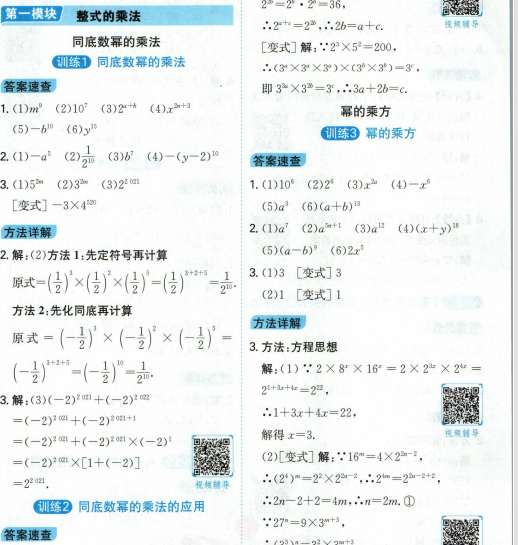 第一模块 整式的乘法
同底数幂的乘法
训练1 同底数幂的乘法
答案速查
1. (1)m⁹ (2)10⁷ (3)2ᵃ⁺ᵇ (4)x²ⁿ⁺³
(5)−b¹⁰ (6)y¹⁵
2. (1)−a⁵ (2)1/2¹⁰ (3)b⁷ (4)−(y−2)¹⁰
3. (1)5²ᵐ (2)3²ᵐ (3)2²⁰²¹
[变式]−3×4⁵²⁰
方法详解
2. 解:(2)方法1:先定符号再计算
原式=(1/2)³×(1/2)²×(1/2)⁵=(1/2)³⁺²⁺⁵=1/2¹⁰.
方法2:先化同底再计算
原式=(−1/2)³×(−1/2)²×(−1/2)⁵=
(−1/2)³⁺²⁺⁵=(−1/2)¹⁰=1/2¹⁰.
3. 解:(3)(−2)²⁰²¹+(−2)²⁰²²
=(−2)²⁰²¹+(−2)²⁰²¹⁺¹
=(−2)²⁰²¹+(−2)²⁰²¹×(−2)¹
=(−2)²⁰²¹×[1+(−2)]
=2²⁰²¹.
视频辅导
训练2 同底数幂的乘法的应用
答案速查
2²ᵇ=2ᵃ·2ᶜ=36,
∴2ᵃ⁺ᶜ=2²ᵇ,∴2b=a+c.
视频辅导
[变式]解:∵2³×5²=200,
∴(3ᵃ×3ᵃ×3ᵃ)×(3ᵇ×3ᵇ)=3ᶜ,
即3³ᵃ×3²ᵇ=3ᶜ,∴3a+2b=c.
幂的乘方
训练3 幂的乘方
答案速查
1. (1)10⁶ (2)2⁶ (3)x²ᵃ (4)−x⁶
(5)a³ (6)(a+b)¹³
2. (1)a⁷ (2)a⁵ⁿ⁺¹ (3)a¹² (4)(x+y)¹⁸
(5)(a−b)⁹ (6)2x⁵
3. (1)3 [变式]3
(2)1 [变式]1
方法详解
3. 方法:方程思想
解:(1)∵2×8ˣ×16ˣ=2×2³ˣ×2⁴ˣ=
2¹⁺³ˣ⁺⁴ˣ=2²²,
∴1+3x+4x=22,
解得x=3.
视频辅导
(2)[变式]解:∵16ᵐ=4×2²ⁿ⁻²,
∴(2⁴)ᵐ=2²×2²ⁿ⁻²,∴2⁴ᵐ=2²ⁿ⁻²⁺²,
∴2n−2+2=4m,∴n=2m.①
∵27ⁿ=9×3ᵐ⁺³,
∴(3³)ⁿ=3²×3ᵐ⁺³